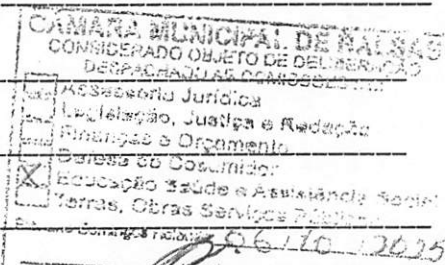 CÂMARA MUNICIPAL DE
CONSIDERADO OBJETO DE
DESPACHADO AS
Assessoria Jurídica
Legislação, Justiça e Redação
Finanças e Orçamento
Defesa do Cosumidor
X Educação Saúde e Assistência Social
Terras, Obras Serviços Públicos
06/10/2025